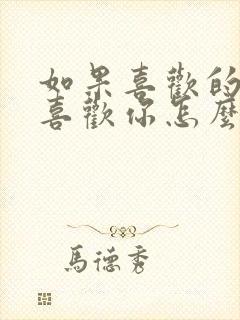 如果喜歡的
喜歡你怎麼
馬德秀